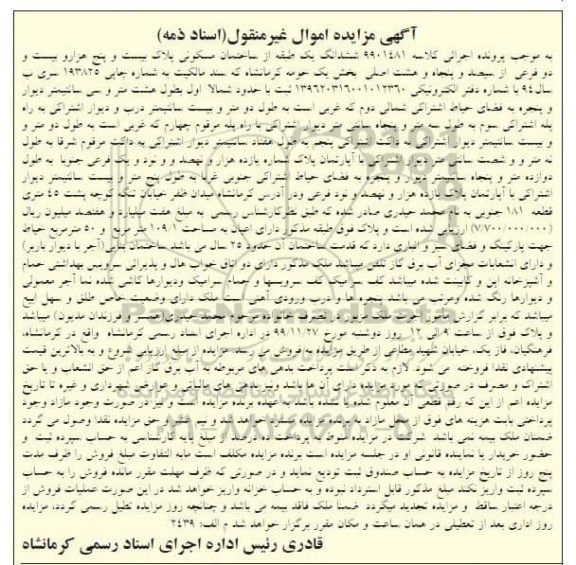 آگهی مزایده اموال غیرمنقول(اسناد ذمه)
به موجب پرونده اجرائی کلاسه ۹۹۰۱۴۸۱ ششدانگ یک طبقه از ساختمان مسکونی پلاک بیست و پنج هزارو بیست و
دو فرعی از سیصد و پنجاه و هشت اصلی بخش یک حومه کرمانشاه که سند مالکیت به شماره چاپی ۱۹۳۸۲۵ سری ب
سال۹۴ با شماره دفتر الکترونیکی ۱۳۹۶۲۰۳۱۶۰۰۱۰۱۲۳۶۰ ثبت با حدود شمالا اول بطول هشت متر و سی سانتیمتر دیوار
و پنجره به فضای حیاط اشتراکی شمالی دوم که غربی است به طول دو متر و بیست سانتیمتر درب و دیوار اشتراکی به راه
پله اشتراکی سوم به طول سه متر و پنجاه سانتی متر دیوار اشتراکی با راه پله مرقوم چهارم که غربی است به طول دو متر و
بیست سانتیمتر دیوار اشتراکی به داکت اشتراکی پنجم به طول هفتاد سانتیمتر دیوار اشتراکی به داکت مرقوم شرقا به طول
نه متر و و شصت سانتیمتر با آپارتمان پلاک شماره یازده هزار و نهصد و نود و یک فرعی جنوبا به طول
دوازده متر و پنجاه سانتیمتر دیوار و پنجره به فضای حیاط اشتراکی جنوبی غربا به طول پنج متر و بیست سانتیمتر دیوار
اشتراکی با آپارتمان پلاک یازده هزار و نهصد و نود فرعی ودر آدرس کرمانشاه میدان ظفر خیابان تنگه کوچه پشت ۴۵ متری
قطعه ۱۸۱ جنوبی به نام محمد حیدری صادر شده که طبق نظرکارشناس رسمی به مبلغ هفت میلیارد و هفتصد میلیون ریال
(۷/۷۰۰/۰۰۰/۰۰۰) ارزیابی شده است و پلاک فوق طبقه مذکور دارای اعیان به مساحت ۱۰۹/۱ متر مربع و ۵۰ مترمربع حیاط
جهت پارکینگ و فضای سبز و انباری دارد که قدمت ساختمان آن حدود ۲۵ سال می باشد ساختمان بنائی (آجر با دیوار باربر)
و دارای انشعابات مجزای آب برق گاز تلفن میباشد ملک مذکور دارای دو اتاق خواب هال و پذیرائی سرویس بهداشتی حمام
و آشپزخانه اپن و کابینت شده میباشد کف سرامیک کف سرویسها و حمام سرامیک ودیوارها کاشی شده نما آجر معمولی
و دیوارها رنگ شده ومرتب می باشد پنجره ها و درب ورودی آهنی است ملک دارای وضعیت خاص طلق و سهل البیع
میباشد که برابر گزارش مامور اجرا ملک در تصرف محمد حیدری فرزندان مدیون) میباشد
و پلاک فوق از ساعت ۹ الی ۱۲ روز دوشنبه مورخ ۹۹/۱۱/۲۷ در اداره اجرای اسناد رسمی کرمانشاه واقع در کرمانشاه،
فرهنگیان، فاز یک، خیابان شهید مطاعی از طریق مزایده به فروش می رسد مزایده از مبلغ ارزیابی شروع و به بالاترین قیمت
پیشنهادی نقدا فروخته می شود لازم به ذکر است پرداخت بدهی های مربوطه به آب برق گاز اعم از حق انشعاب و یا حق
اشتراک و مصرف در صورتی که مورد مزایده دارای آن ها باشد ونیز بدهی های مالیاتی و عوارض شهرداری و غیره تا تاریخ
مزایده اعم از این که رقم قطعی آن معلوم شده یا نشده باشد به عهده برنده مزایده است و نیز در صورت وجود مازاد وجوه
پرداختی بابت هزینه های فوق از محل مازاد به برنده مزایده مسترد خواهد شد و نیم عشر و حق مزایده نقدا وصول می گردد
ضمنان ملک بیمه نمی باشد شرکت در مزایده منوط به پرداخت ده درصد از مبلغ پایه کارشناسی به حساب سپرده ثبت و
حضور خریدار یا نماینده قانونی او در جلسه مزایده است برنده مزایده مکلف است مابه التفاوت مبلغ فروش را ظرف مدت
پنج روز از تاریخ مزایده به حساب صندوق ثبت تودیع نماید و در صورتی که ظرف مهلت مقرر مانده فروش را به حساب
سپرده ثبت واریز نکند مبلغ مذکور قابل استرداد نبوده و به حساب خزانه واریز خواهد شد در این صورت عملیات فروش از
درجه اعتبار ساقط و مزایده تجدید میگردد ضمنا ملک فاقد بیمه می باشد و چنانچه روز مزایده تطیل رسمی گردد، مزایده
روز اداری بعد از تعطیلی در همان ساعت و مکان مقرر برگزار خواهد شد م الف: ۲۴۳۹
قادری رئیس اداره اجرای اسناد رسمی کرمانشاه
ParsNamadData
۰۲۱-۸۸۳۴۹۶۷۰-۵